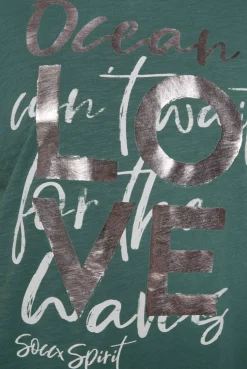 Ocean
LO
can't wait
for the
VE
Waves
Soccx Spirit